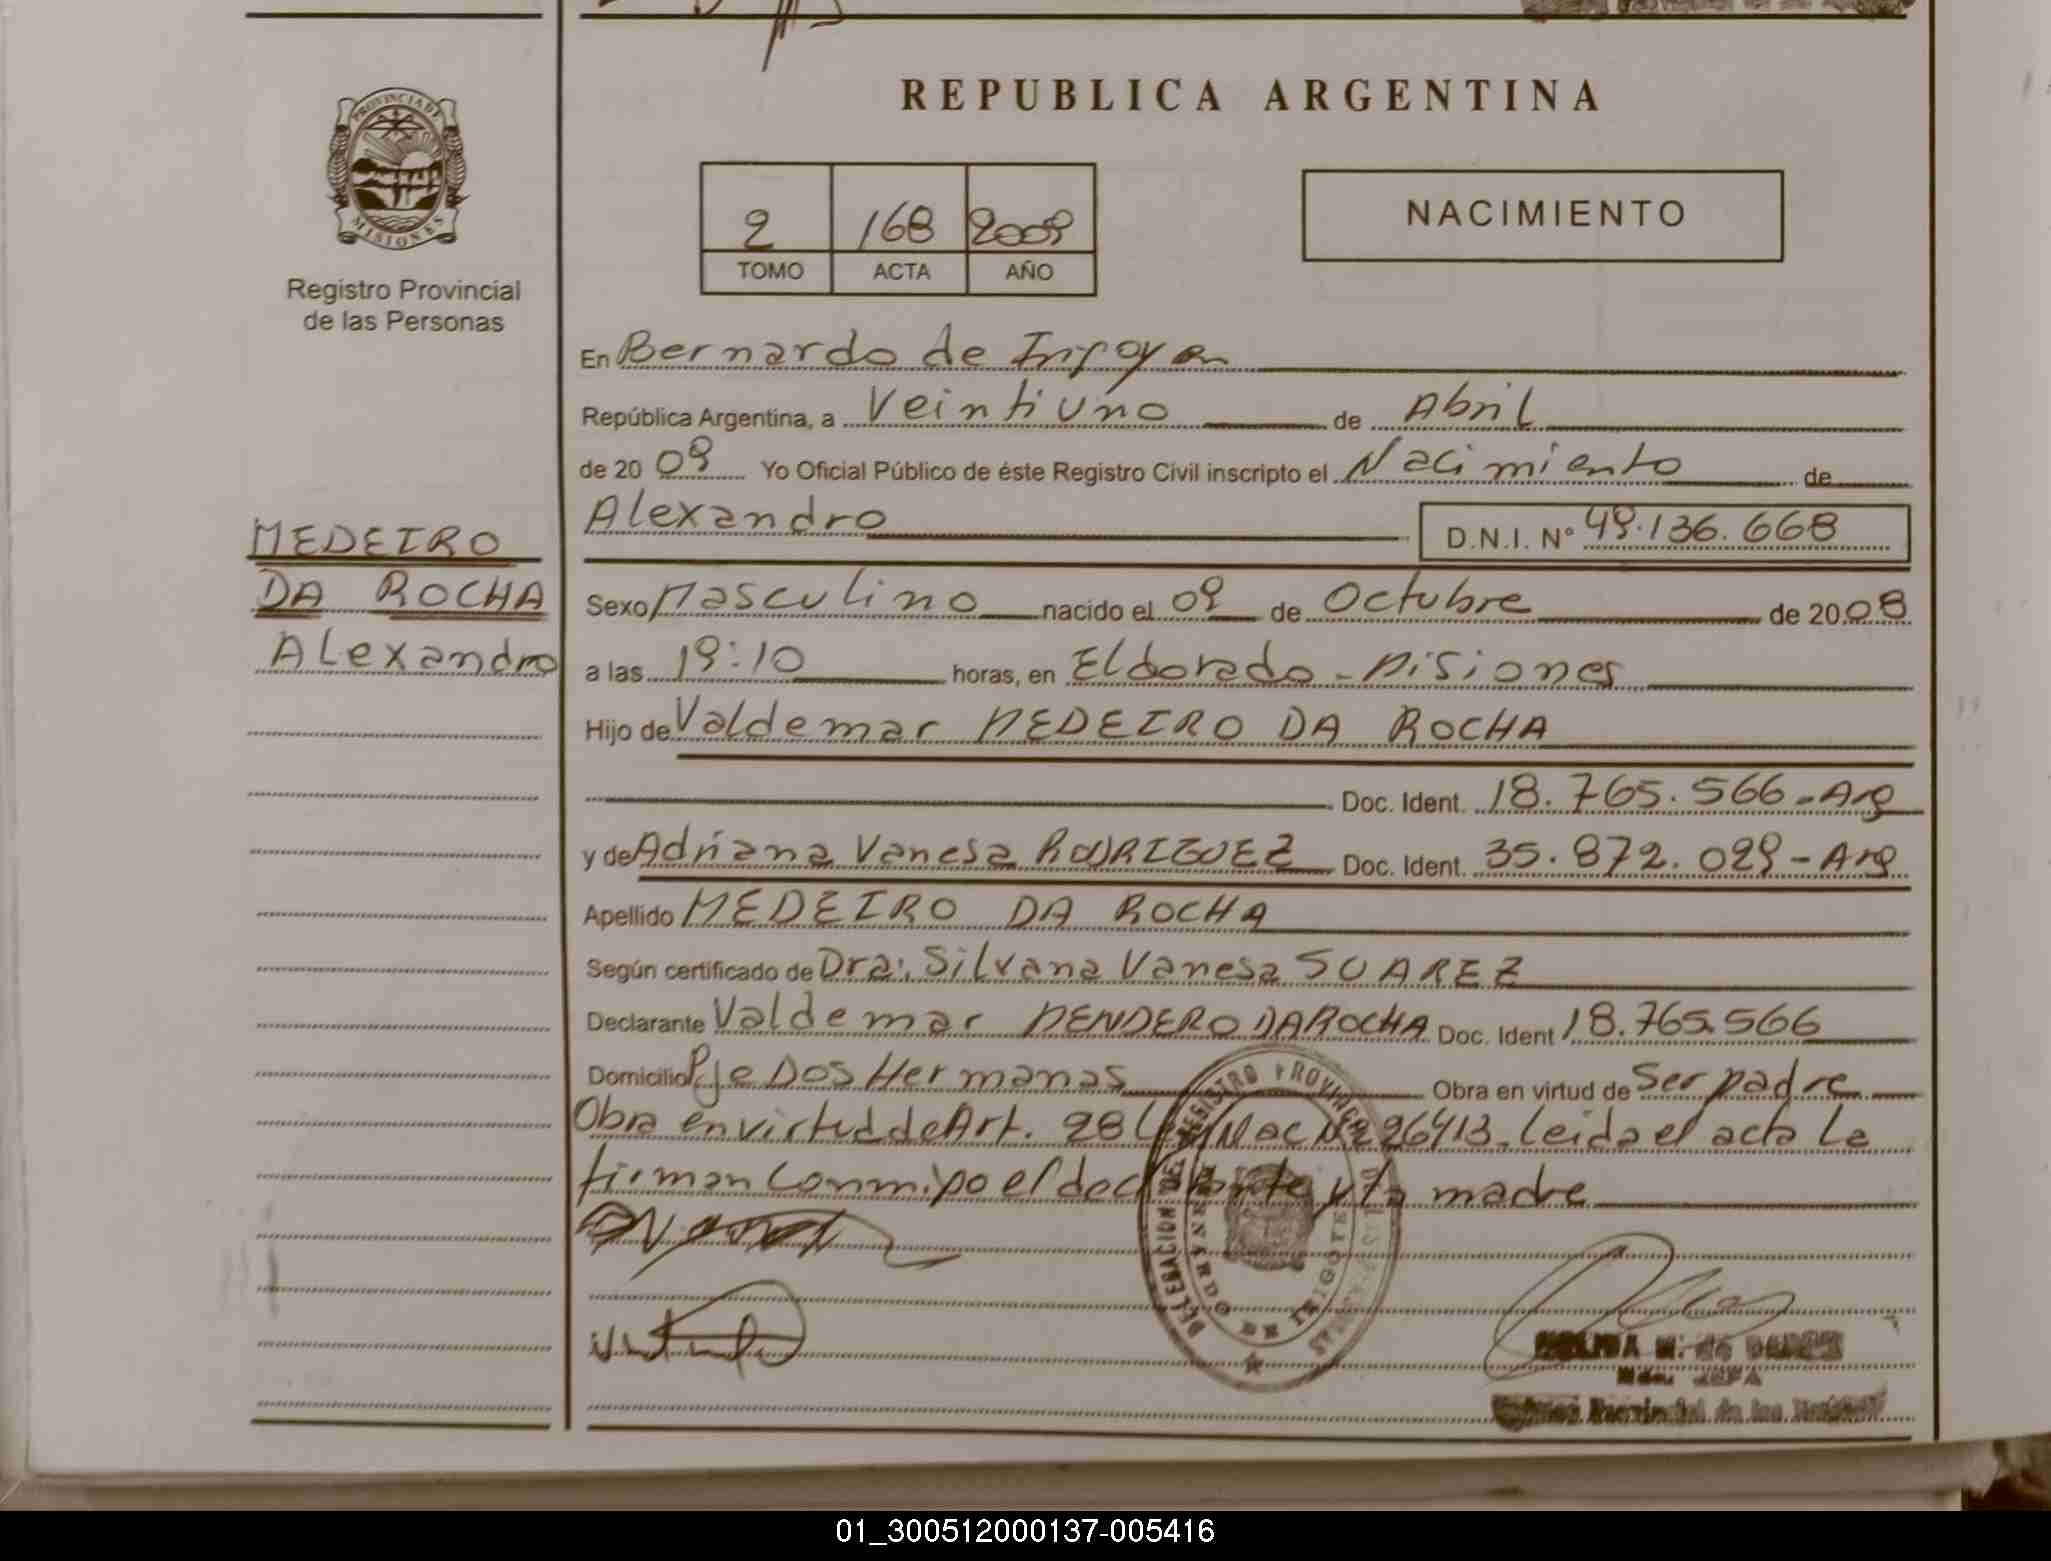 REPUBLICA ARGENTINA
PROVINCIA DE
MISIONES
Registro Provincial
de las Personas
2 168 2009
TOMO ACTA AÑO
NACIMIENTO
En Bernardo de Irigoyen
República Argentina, a Veintiuno de Abril
de 20 09 Yo Oficial Público de éste Registro Civil inscripto el Nacimiento de
Alexandro D.N.I. Nº 49.136.668
MEDEIRO
DA ROCHA
Alexandro
Sexo Masculino nacido el 09 de Octubre de 20 08
a las 19:10 horas, en Eldorado - Misiones
Hijo de Valdemar MEDEIRO DA ROCHA
Doc. Ident. 18.765.566 - Arg
y de Adriana Vanesa RODRIGUEZ Doc. Ident. 35.872.029 - Arg
Apellido MEDEIRO DA ROCHA
Según certificado de Dra: Silvana Vanesa SUAREZ
Declarante Valdemar MENDERO DA ROCHA Doc. Ident 18.765.566
Domicilio Pje Dos Hermanas Obra en virtud de Ser padre
Obra en virtud de Art. 28 Ley Nac Nº 26413. Leida el acta la
firman conmigo el declarante y la madre
DELEGACION DEL REGISTRO PROVINCIAL DE LAS PERSONAS
BERNARDO DE IRIGOYEN
JEFA
Provincial de las
01_300512000137-005416